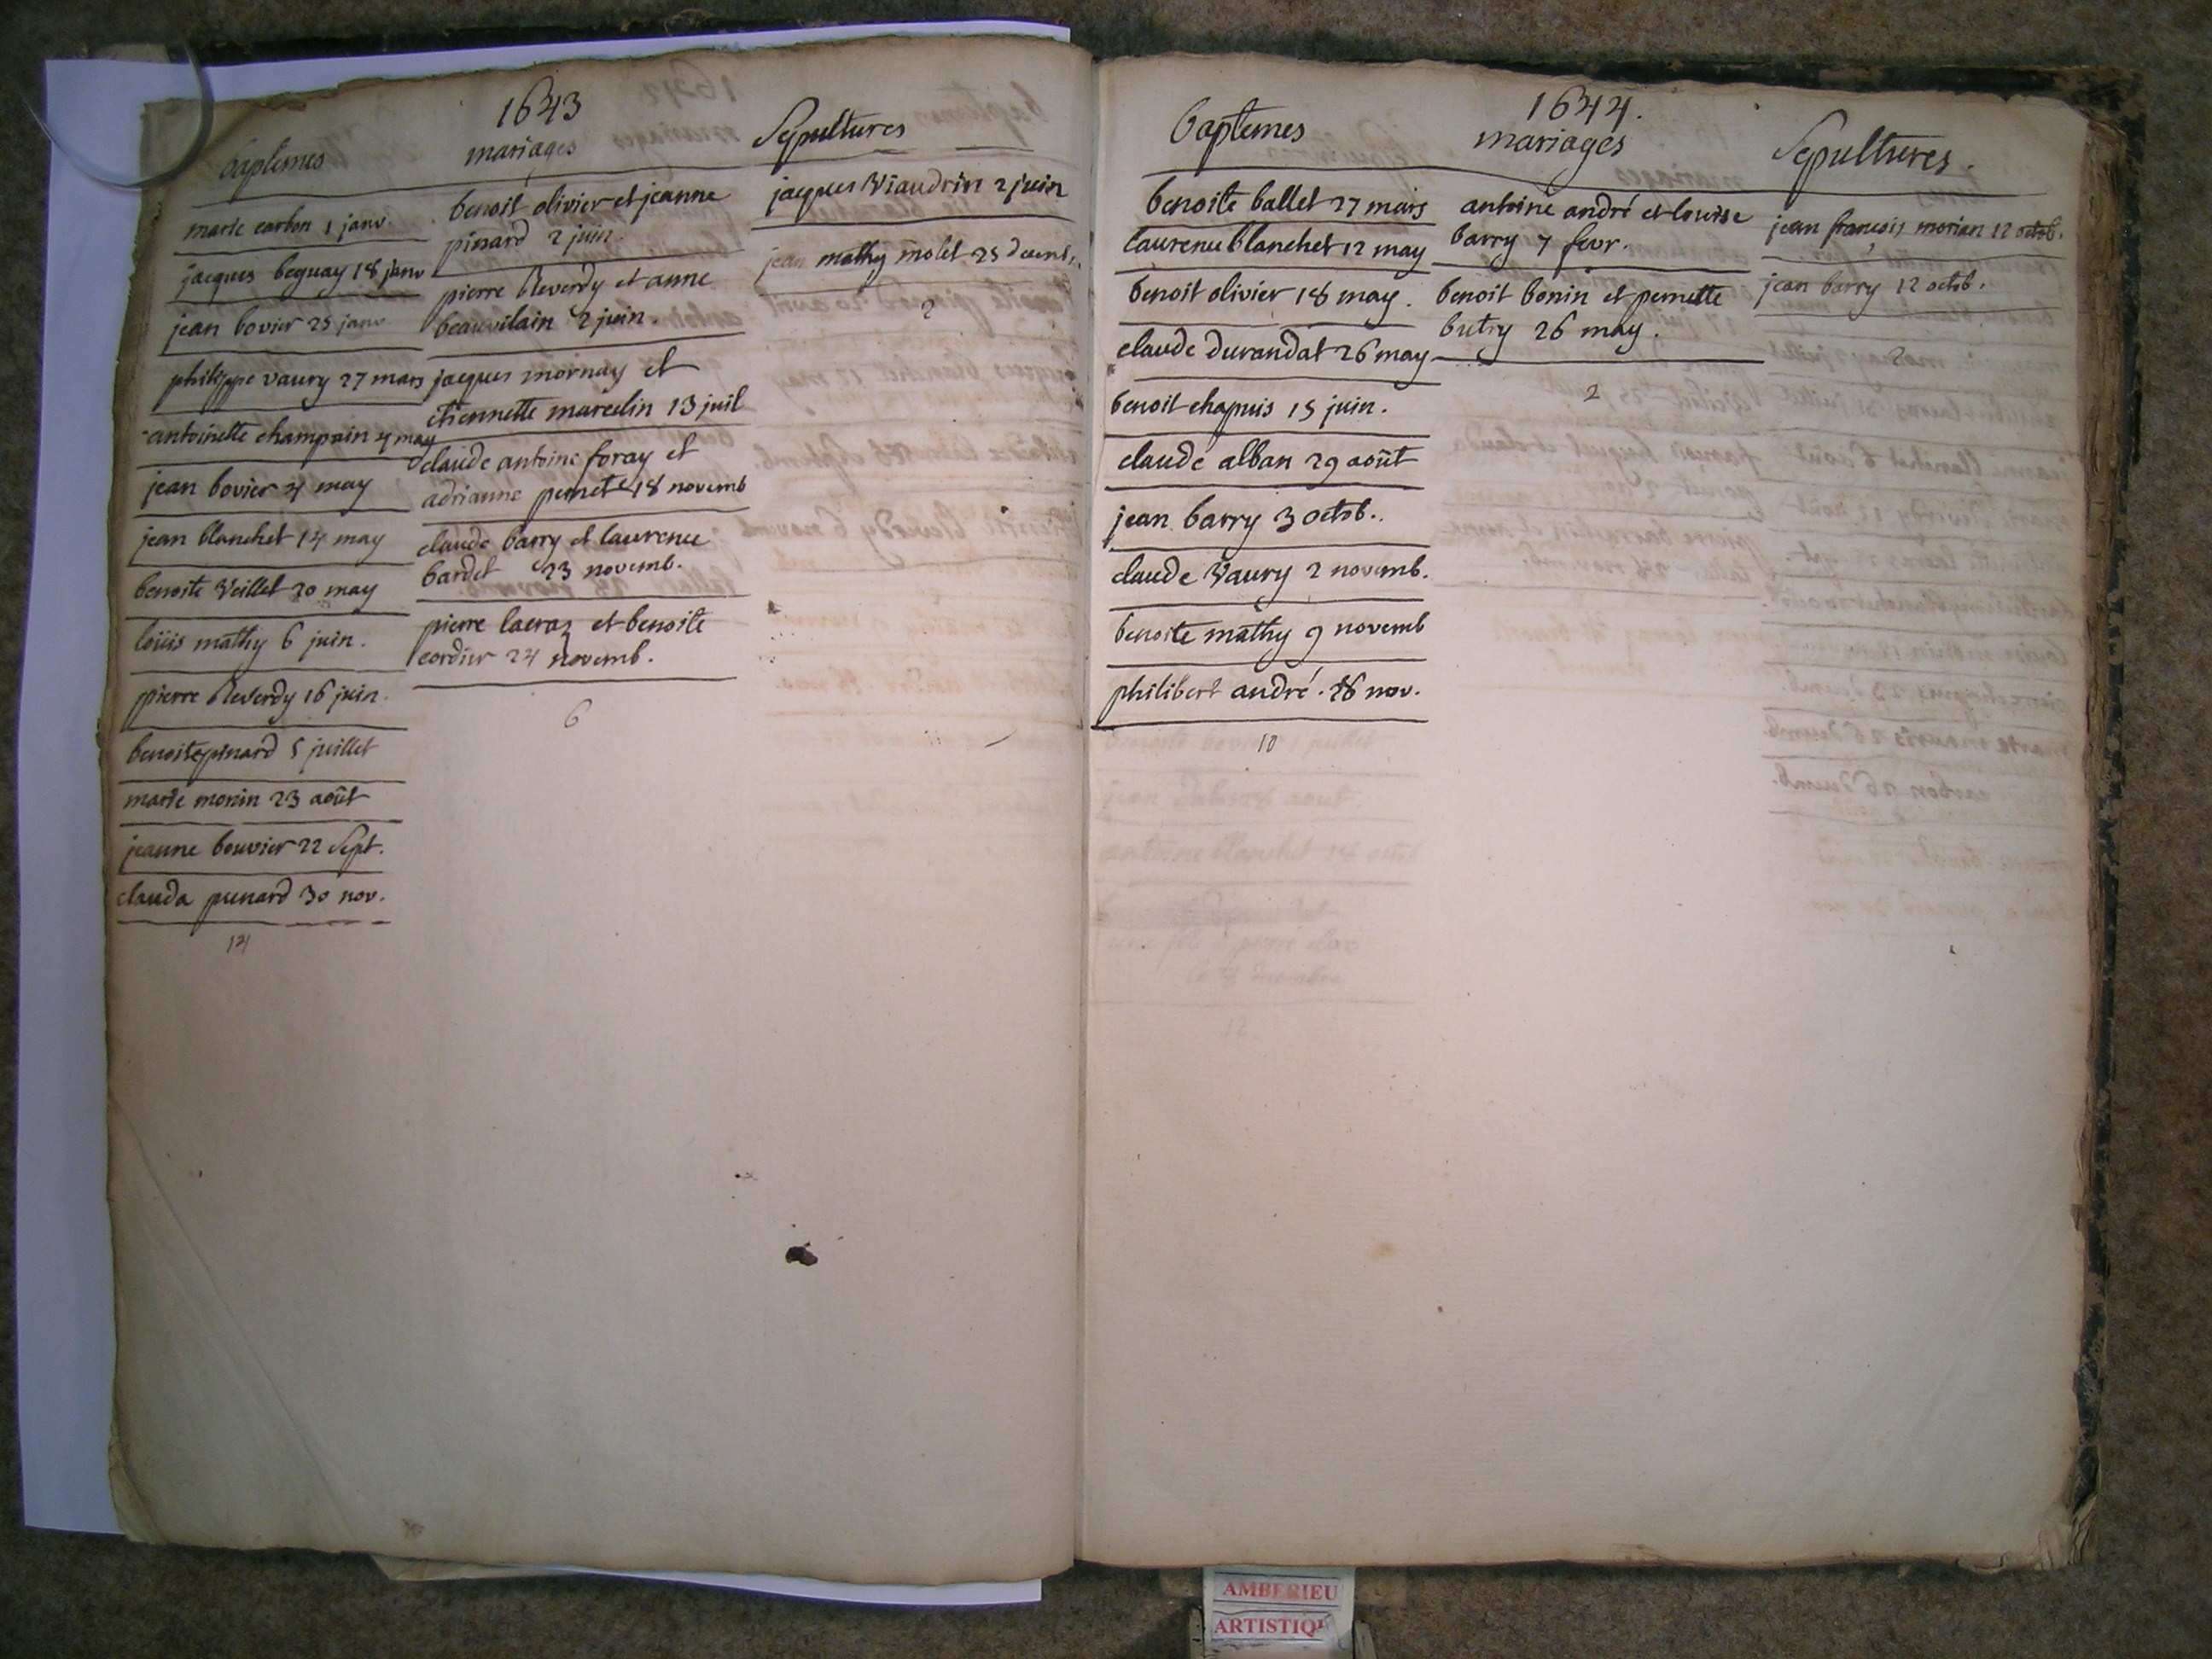 1643
baptemes
marie carbon 1 janv.
jacques beguay 18 janv
jean bovier 25 janv
philippe vaury 27 mars
antoinette champain 4 may
jean bovier 4 may
jean blanchet 14 may
benoite Veillet 20 may
loüis mathy 6 juin.
pierre Reverdy 16 juin.
benoite pinard 5 juillet
marie monin 23 août
jeanne bouvier 22 Sept.
clauda punard 30 nov.
14
mariages
benoit olivier et jeanne
pinard 2 juin.
pierre Reverdy et anne
beauvilain 2 juin.
jacques mornay et
etiennette marcelin 13 juil
claude antoine foray et
adrianne pernete 18 novemb
claude barry et laurence
bardet 23 novemb.
pierre lacraz et benoite
cordier 24 novemb.
6
Sepultures
jacques Viaudrin 2 juin
jean mathy molet 25 decemb.
2
1644.
baptemes
benoite ballet 27 mars
laurence blanchet 12 may
benoit olivier 18 may.
claude durandat 26 may
benoit chapuis 15 juin.
claude alban 29 août
jean barry 3 octob.
claude Vaury 2 novemb.
benoite mathy 9 novemb
philibert andré. 16 nov.
10
mariages
antoine andré et louise
barry 7 fevr.
benoit bonin et pernette
butry 26 may.
2
Sepultures.
jean françois morian 12 octob.
jean barry 12 octob.
2
AMBERIEU
ARTISTIQU